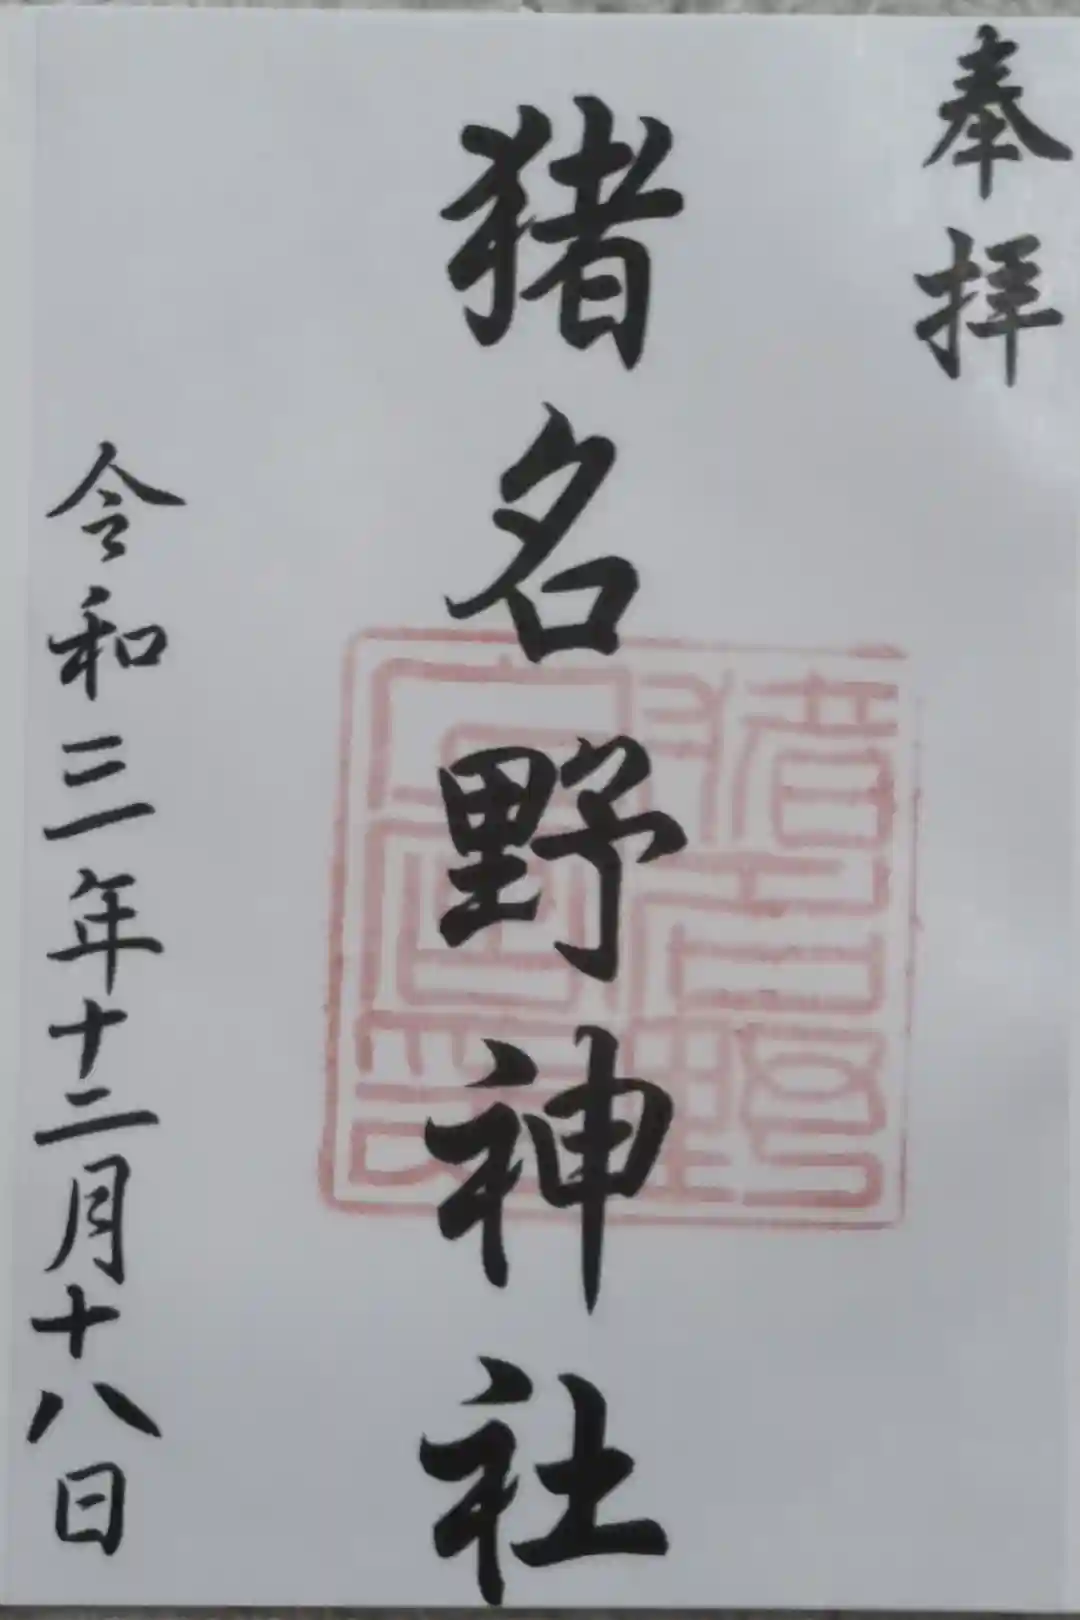 奉拝
猪名野神社
令和三年十二月十八日